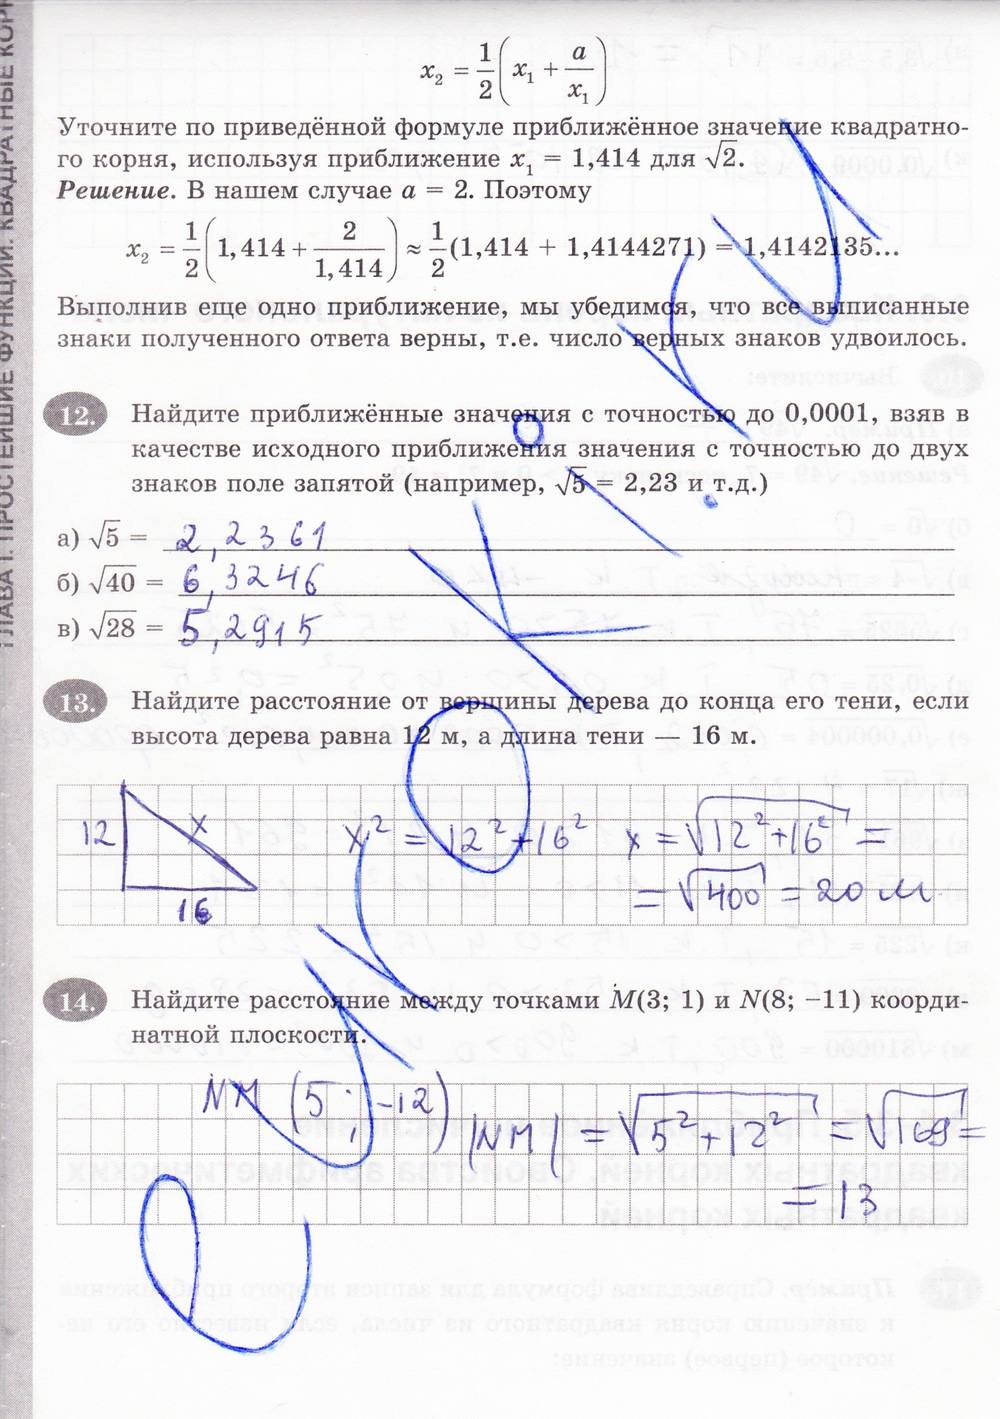 x₂ = 1/2 (x₁ + a/x₁)
Уточните по приведённой формуле приближённое значение квадратно-
го корня, используя приближение x₁ = 1,414 для √2.
Решение. В нашем случае a = 2. Поэтому
x₂ = 1/2 (1,414 + 2/1,414) ≈ 1/2 (1,414 + 1,4144271) = 1,4142135...
Выполнив еще одно приближение, мы убедимся, что все выписанные
знаки полученного ответа верны, т.е. число верных знаков удвоилось.
12. Найдите приближённые значения с точностью до 0,0001, взяв в
качестве исходного приближения значения с точностью до двух
знаков поле запятой (например, √5 = 2,23 и т.д.)
а) √5 = 2,2361
б) √40 = 6,3246
в) √28 = 5,2915
13. Найдите расстояние от вершины дерева до конца его тени, если
высота дерева равна 12 м, а длина тени — 16 м.
12 x x² = 12² + 16² x = √12² + 16² =
16 = √400 = 20 м.
14. Найдите расстояние между точками M(3; 1) и N(8; −11) коорди-
натной плоскости.
NM (5; -12) |NM| = √5² + 12² = √169 =
= 13
ГЛАВА I. ПРОСТЕЙШИЕ ФУНКЦИИ. КВАДРАТНЫЕ КОРН